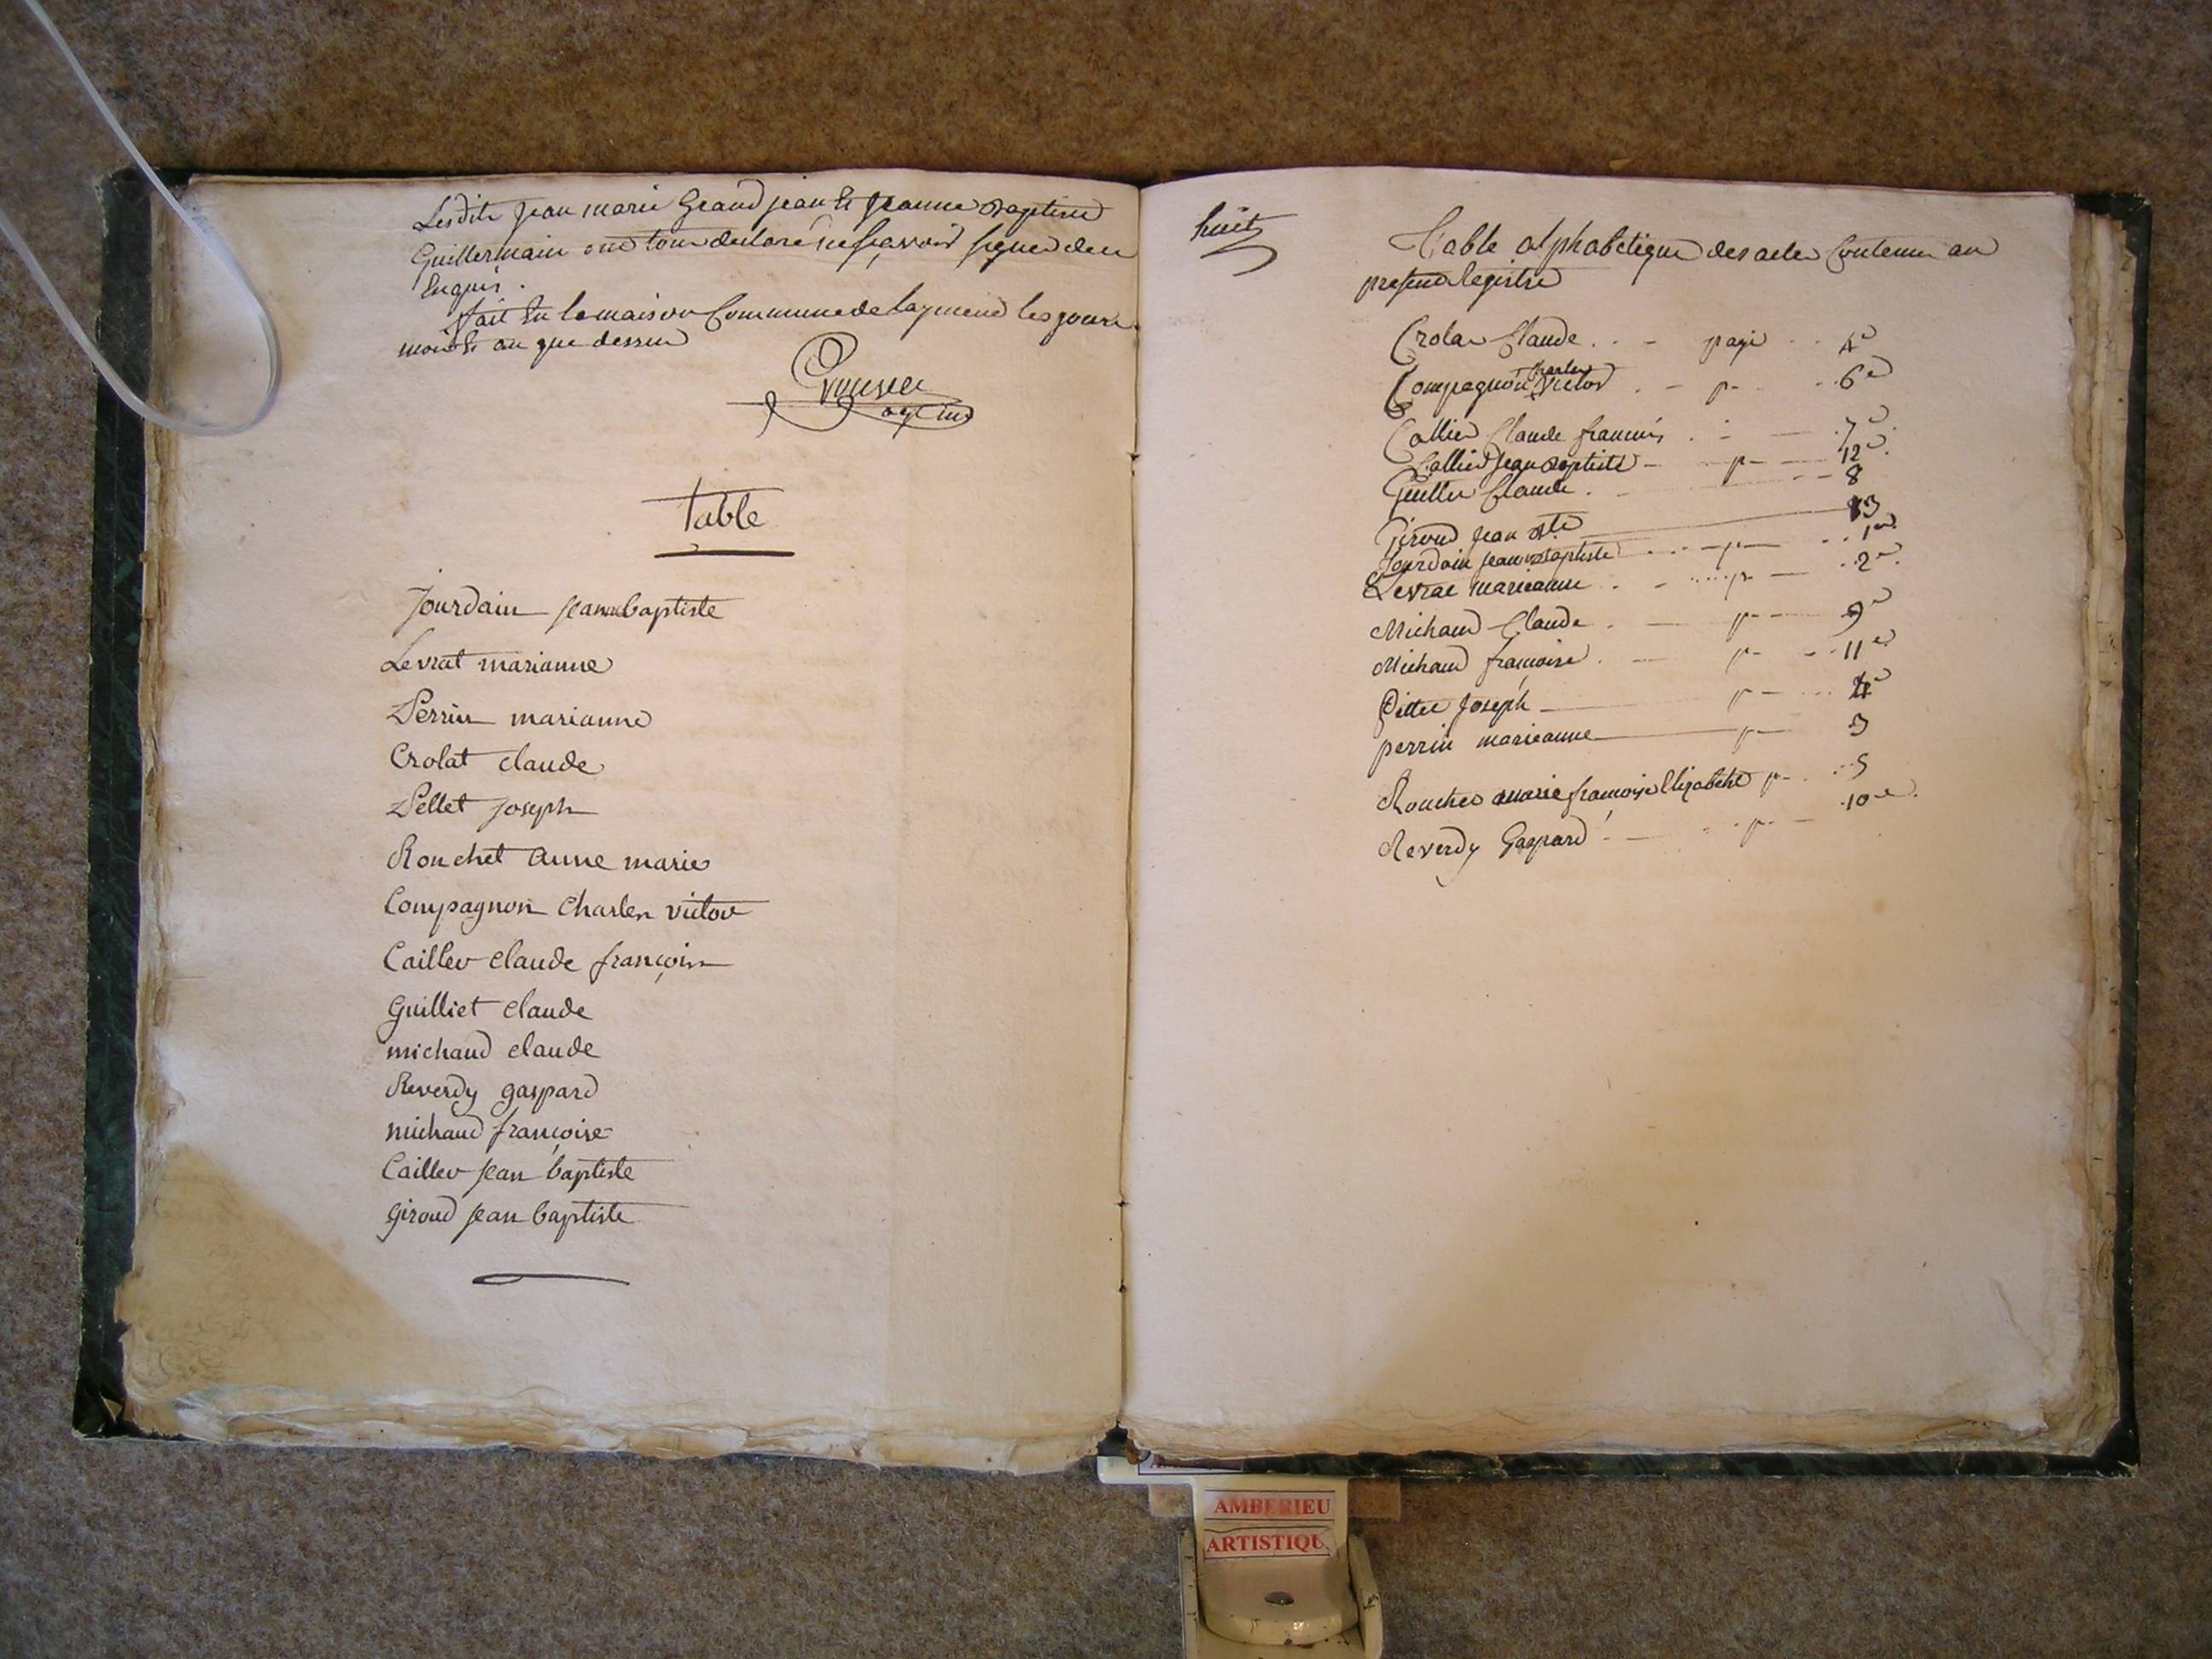 Lesdits Jean marie Grand jean & Jeanne Baptiste
Guillermain ont tous declaré ne scavoir signer de ce
Enquis.
fait En la maison Commune de Laymend les jours
mois & an que dessus
agent
table
Jourdain Jean baptiste
Levrat marianne
Perrin marianne
Crolat claude
Pellet Joseph
Rouchet anne marie
Compagnon Charles victor
Cailler claude françois
Guilliet claude
michaud claude
Reverdy gaspard
michaud françoise
Cailler Jean baptiste
Giroud Jean baptiste
huit
Table alphabetique des actes Contenu au
present Registre
Crolat Claude . . - page . . 4e
Compagnon Charles Victor . - p - . 6e
Callier Claude francois . - - 7e
Callier Jean Baptiste - p - 12e
Guillet Claude . - - 8
Giroud Jean Bte 13
Jourdain Jean Baptiste . . - p - . . 1er
Levrat marieanne . - . . . p - . 2e
Michaud Claude . - p - 9e
Michaud françoise . - p - - 11e
Pillet Joseph - p - . . 4e
perrin marieanne - p - 3
Rouchet marie francoise Elizabeth p - . . 5
Reverdy Gaspard . - . p - 10e
AMBERIEU
ARTISTIQU